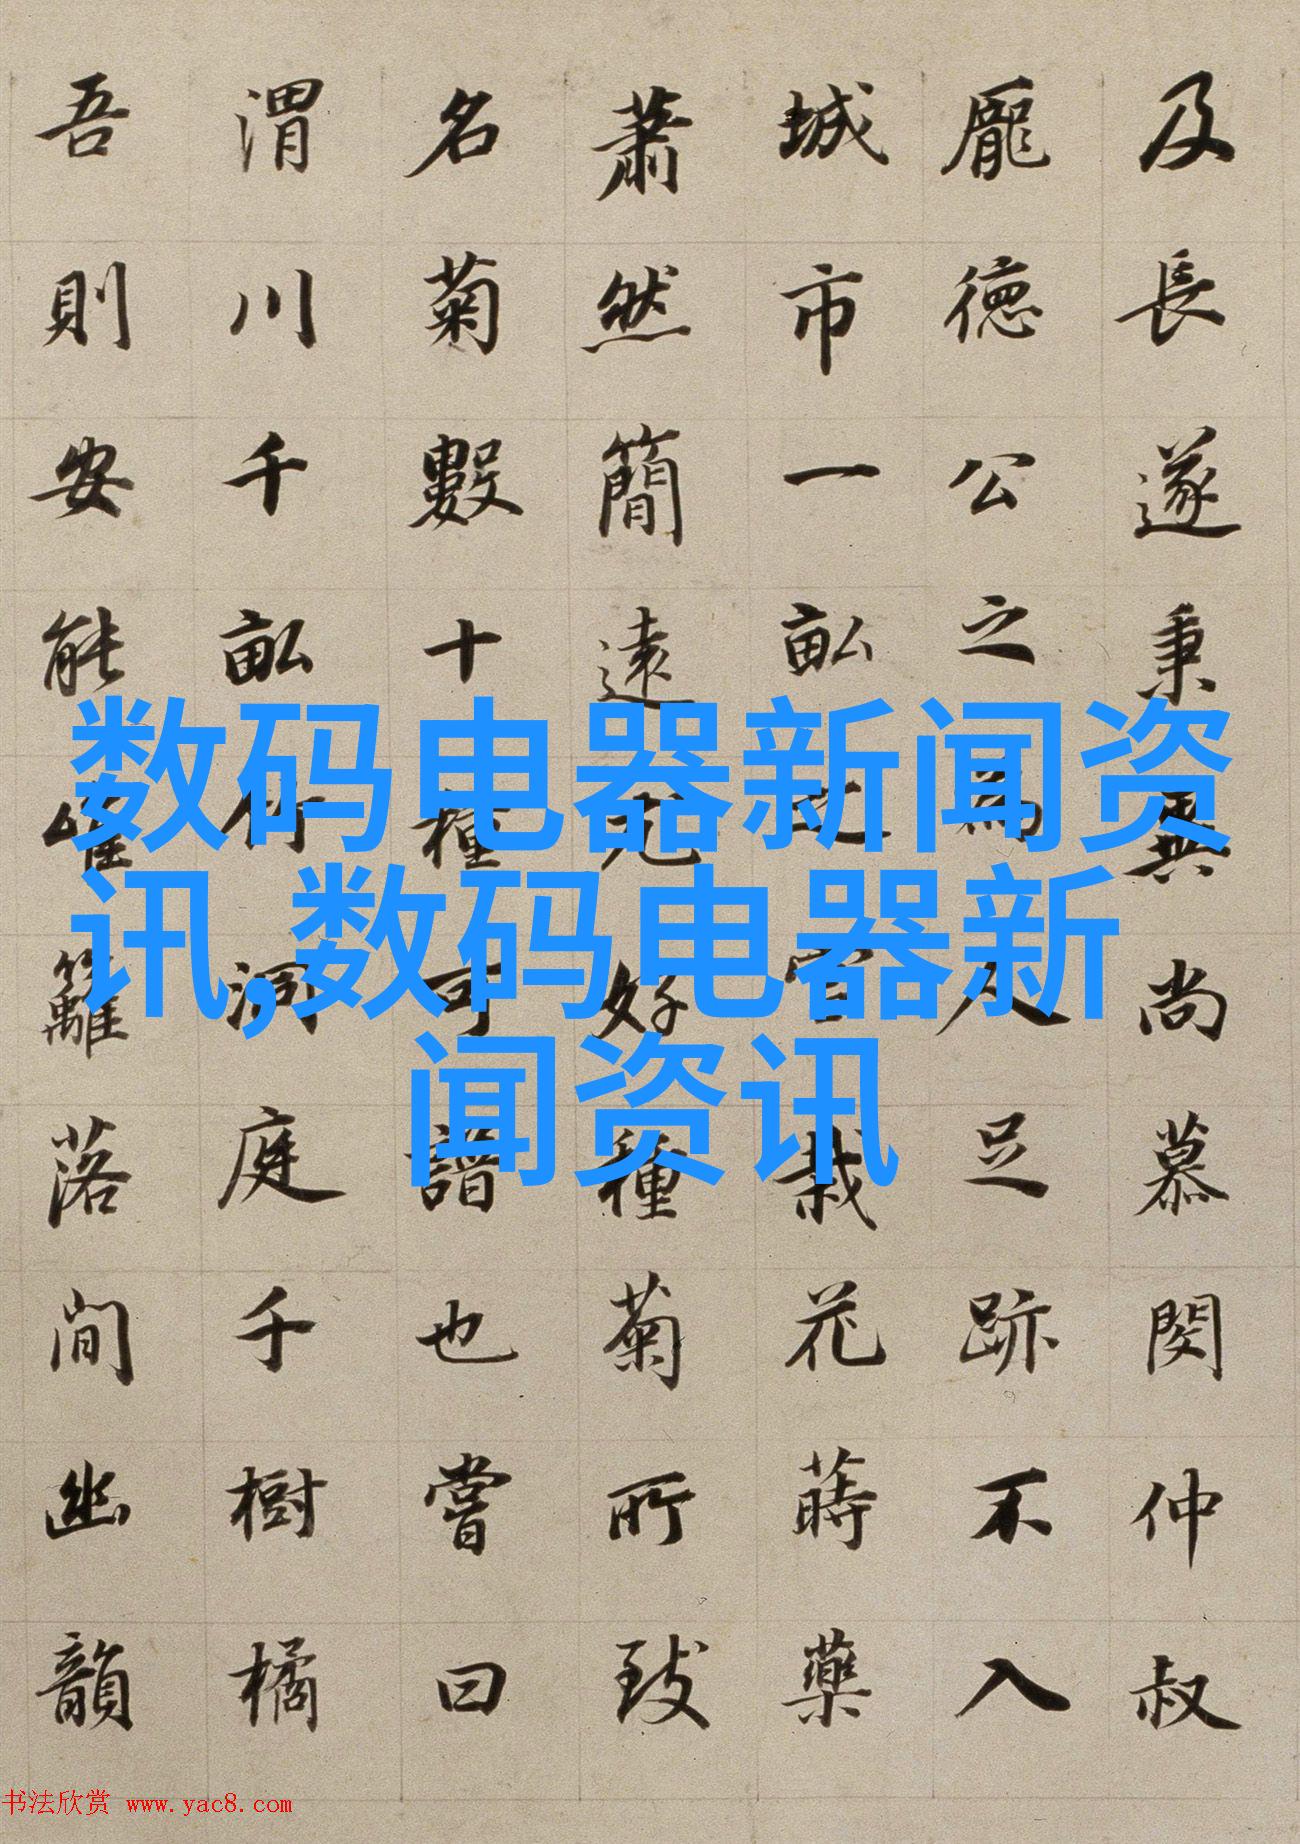 及長遂秉異尚慕閔仲叔
龐德公之為人足跡不入
城市一畝之宮栽花蒔藥
蕭然簡遠尤好種菊所致
名菊數十種可譜也嘗曰
渭川千畝竹洞庭千樹橘
吾則安能唯籬落間幽韻
数码电器新闻资
讯,数码电器新
闻资讯
书法欣赏 www.yac8.com